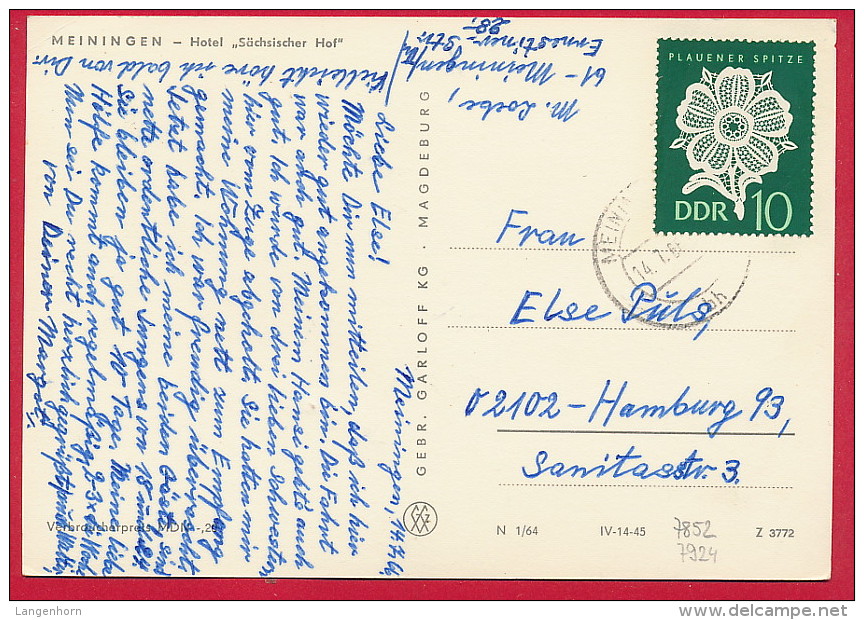 MEININGEN – Hotel „Sächsischer Hof"
M. Loebe,
61 – Meiningen/Thür
Ernestiner-Str.
28,-
PLAUENER SPITZE
DDR 10
MEININ
14.7.66
hh
Meiningen, 14.7.66
Liebe Else!
Möchte Dir nun mitteilen, daß ich hier
wieder gut angekommen bin. Die Fahrt
war auch gut. Meinem Hansi geht es auch
gut. Ich wurde von drei lieben Schwestern
hier vom Zuge abgeholt. Sie hatten mir
meine Wohnung nett zum Empfang
gemacht. Ich war freudig überrascht.
Jetzt habe ich meine beiden Gäste, sind
nette ordentliche Jungens von 18 und 21,
sie bleiben ja gut 10 Tage. Meine liebe
Hilfe kommt auch regelmäßig 2-3x die Woche
Nun sei Du recht herzlich gegrüßt
von Deiner Margret.
Vielleicht höre ich bald von Dir.
GEBR. GARLOFF KG · MAGDEBURG
Frau
Else Puls,
02102 – Hamburg 93,
Sanitasstr. 3.
Verbraucherpreis MDN -,20
Z
N 1/64
IV-14-45
7852
7924
Z 3772
Langenhorn
delcampe.net